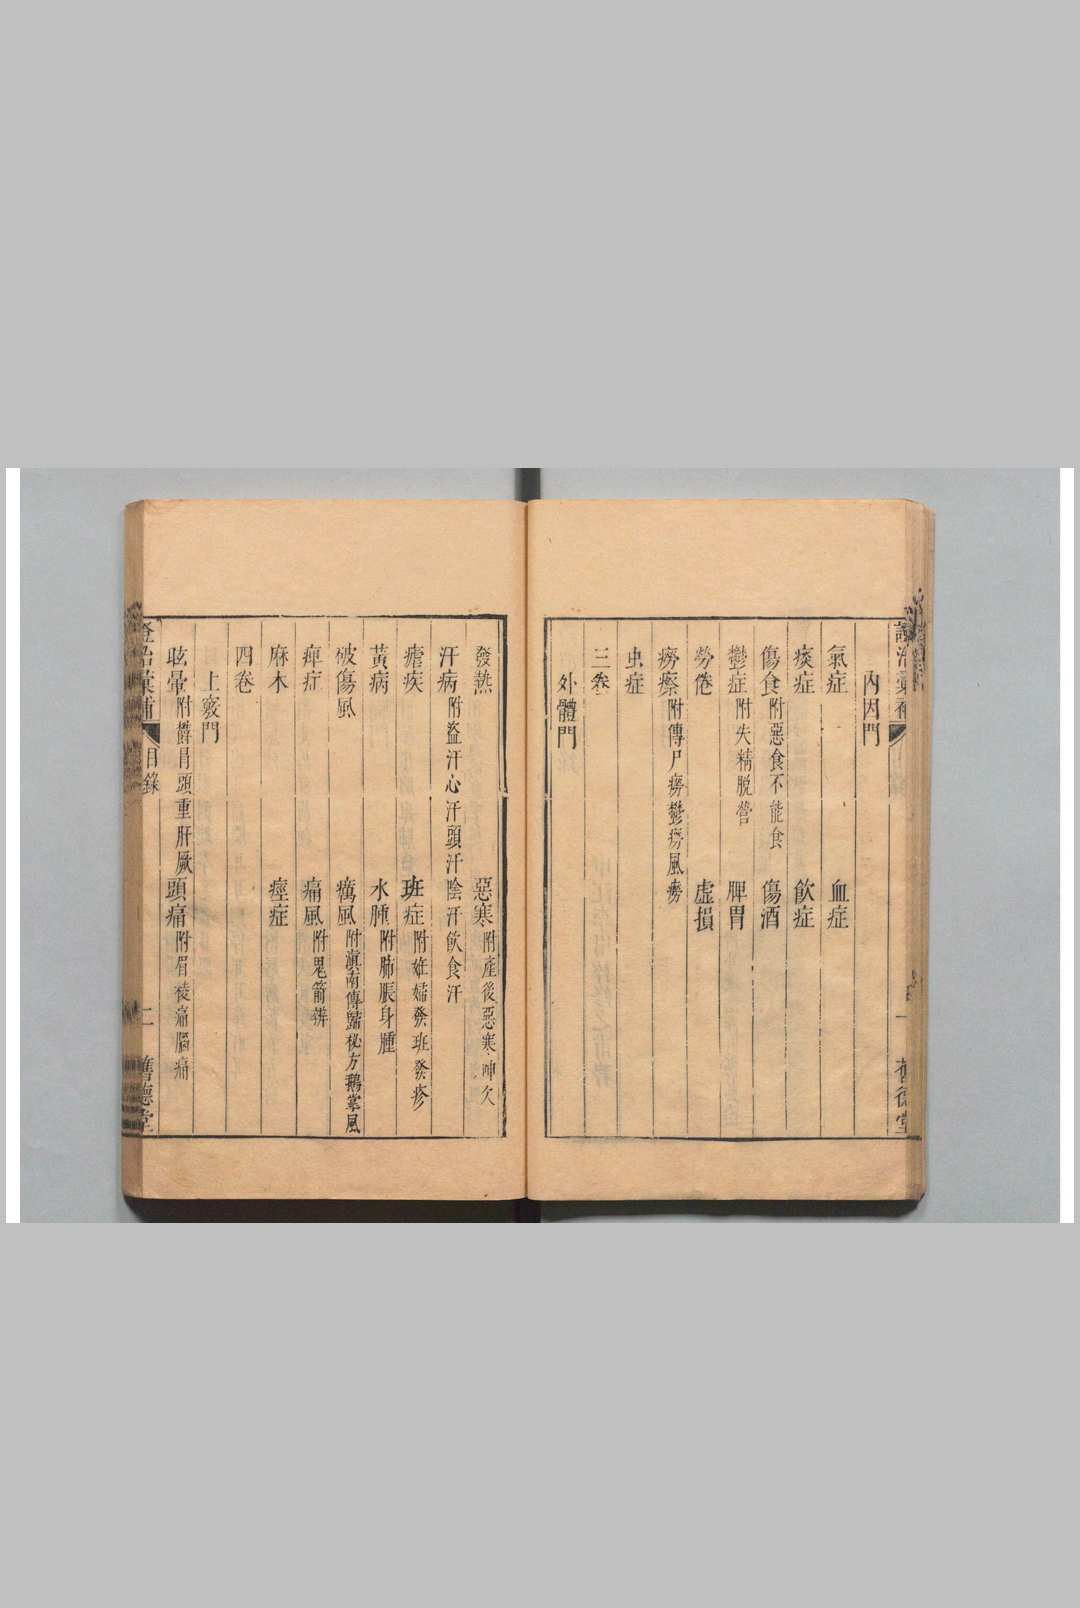 內因門
氣症 血症
痰症 飲症
傷食附惡食不能食 傷酒
鬱症附失精脫營 脾胃
勞倦 虛損
癆瘵附傳尸癆鬱癆風癆
虫症
三卷
外體門
發熱 惡寒附產後惡寒呻欠
汗病附盜汗心汗頭汗陰汗飲食汗
瘧疾 班症附妊娠發班發疹
黃病 水腫附肺脹身腫
破傷風 癘風附滇南傳蠱秘方鵝掌風
痺症 痛風附鬼箭辨
麻木 痙症
四卷
上竅門
眩暈附欝冒頭重肝厥 頭痛附眉稜痛腦痛
證治彙補 目錄 二 舊德堂